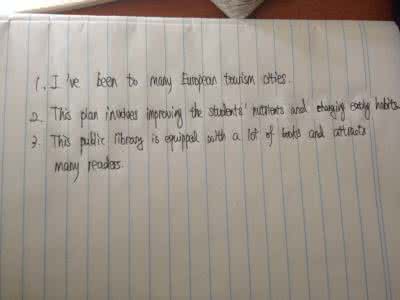 1. I've been to many European tourism cities.
2. This plan involves improving the students' nutrients and changing eating habits.
3. This public library is equipped with a lot of books and attracts
many readers.